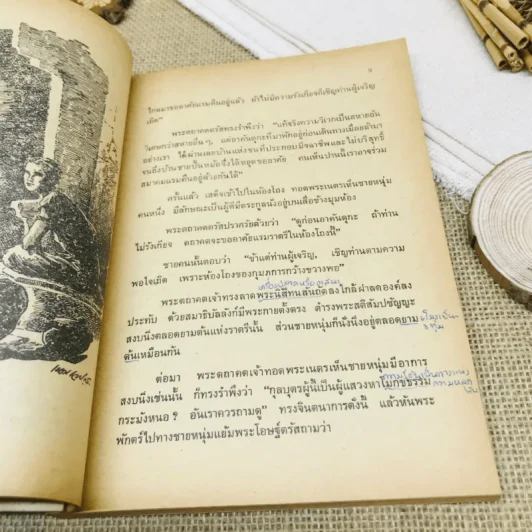 ๙
ไกลมาขออาศัยแรมคืนอยู่แล้ว ถ้าไม่มีความรังเกียจก็เชิญท่านผู้เจริญ
เถิด"
พระตถาคตตรัสทรงรำพึงว่า "แท้จริงความวิเวกเป็นสหายอัน
วิเศษกว่าสหายอื่นๆ, แต่อาคันตุกะที่มาพักอยู่ก่อน
อย่างเรา ได้ผ่านเลยบ้านแห่งชนที่ประกอบมิจฉาชีพและไม่บริสุทธิ์
จนถึงบ้านช่างปั้นหม้อจึงได้หยุดขออาศัย คนเห็นปานนี้เราอาจร่วม
สมาคมแรมคืนอยู่ด้วยกันได้"
ครั้นแล้ว เสด็จเข้าไปในห้องโถง ทอดพระเนตรเห็นชายหนุ่ม
คนหนึ่ง มีลักษณะเป็นผู้ดีมีตระกูลนั่งอยู่บนเสื่อข้างมุมห้อง
พระตถาคตตรัสปราศรัยด้วยว่า "ดูก่อนอาคันตุกะ ถ้าท่าน
ไม่รังเกียจ ตถาคตจะขออาศัยแรมราตรีในห้องโถงนี้"
ชายคนนั้นตอบว่า "ข้าแต่ท่านผู้เจริญ, เชิญท่านตามความ
พอใจเถิด เพราะห้องโถงของกุมภการกว้างขวางพอ"
พระตถาคตเจ้าทรงลาดพระนิสีทนสันถัตลงใกล้ฝาลดองค์ลง
ประทับ ด้วยสมาธิบัลลังก์มีพระกายตั้งตรง ดำรงพระสติสัมปชัญญะ
สงบนิ่งตลอดยามต้นแห่งราตรีนั้น ส่วนชายหนุ่มก็นั่งนิ่งอยู่ตลอดยาม
ต้นเหมือนกัน
ต่อมา พระตถาคตเจ้าทอดพระเนตรเห็นชายหนุ่มมีอาการ
สงบนิ่งเช่นนั้น ก็ทรงรำพึงว่า "กุลบุตรผู้นี้เป็นผู้แสวงหาโมกขธรรม
กระมังหนอ? อันเราควรถามดู" ทรงจินตนาการดังนี้ แล้วหันพระ
พักตร์ไปทางชายหนุ่มแย้มพระโอษฐ์ตรัสถามว่า